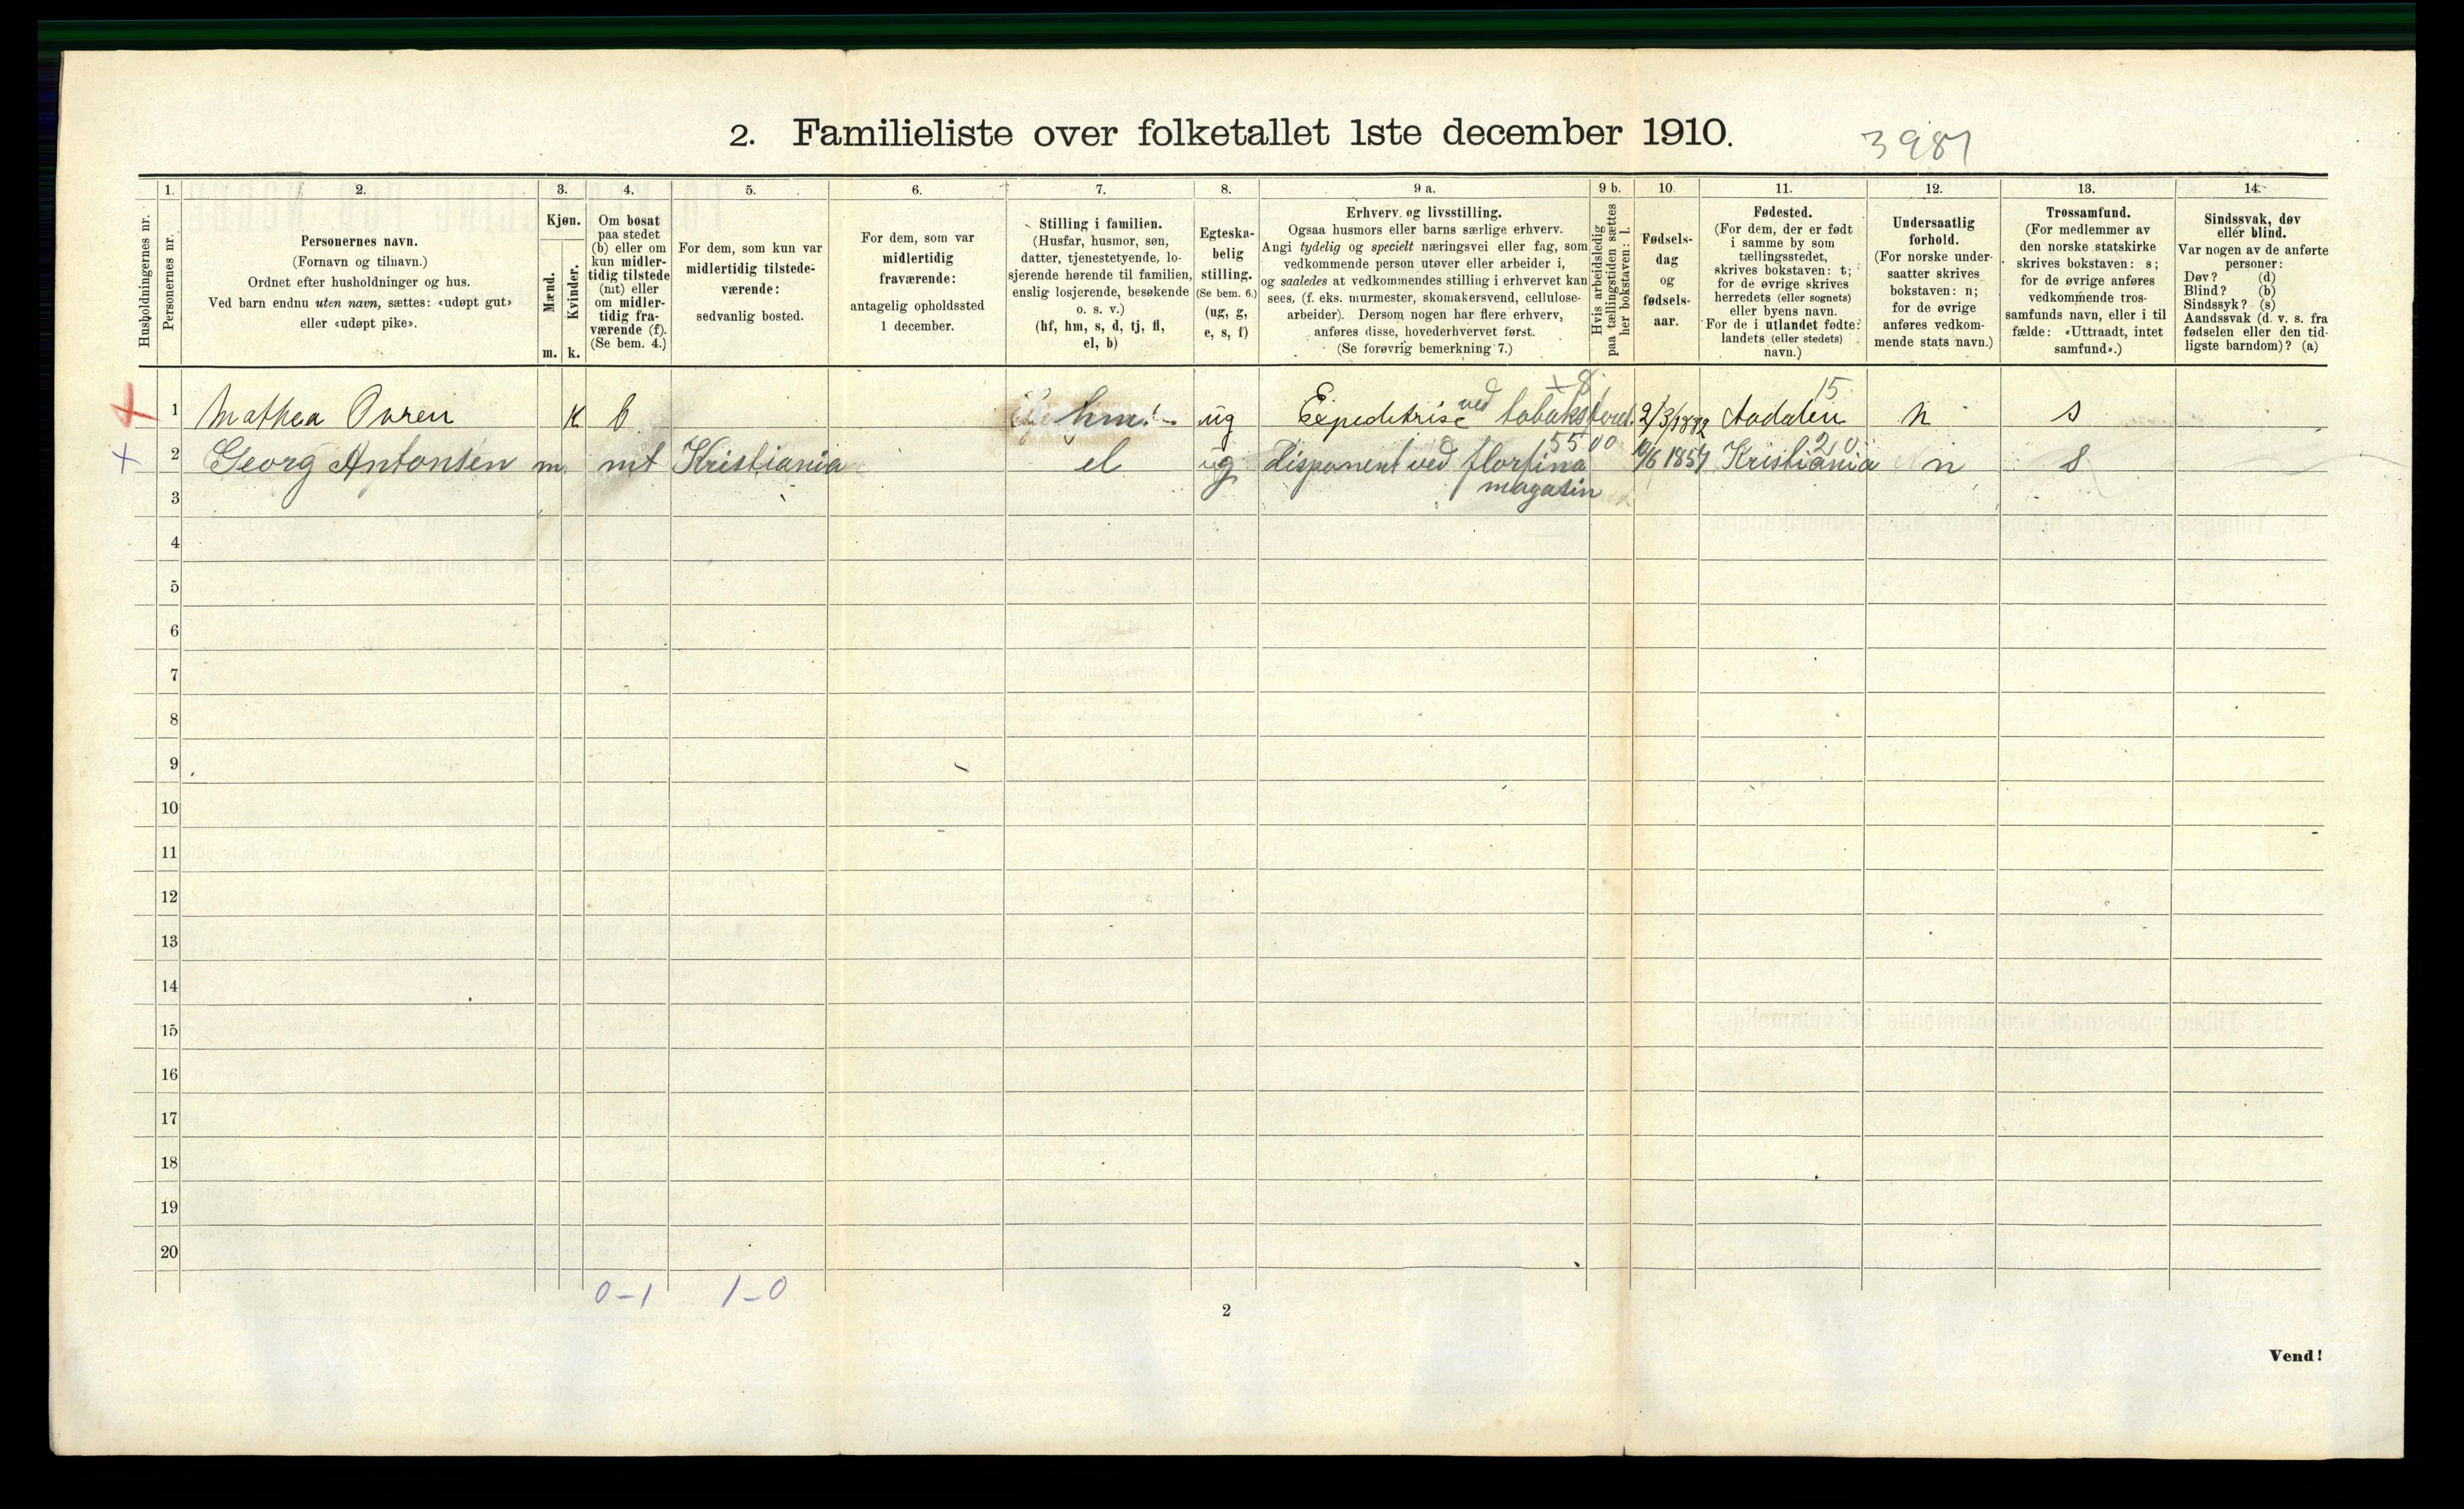 2. Familieliste over folketallet 1ste december 1910.
3987
Husholdningernes nr.
1.
Personernes nr.
2.
Personernes navn.
(Fornavn og tilnavn.)
Ordnet efter husholdninger og hus.
Ved barn endnu uten navn, sættes: «udøpt gut»
eller «udøpt pike».
3.
Kjøn.
Mænd.
Kvinder.
m.
k.
4.
Om bosat
paa stedet
(b) eller om
kun midler-
tidig tilstede
(mt) eller
om midler-
tidig fra-
værende (f).
(Se bem. 4.)
5.
For dem, som kun var
midlertidig tilstede-
værende:
sedvanlig bosted.
6.
For dem, som var
midlertidig
fraværende:
antagelig opholdssted
1 december.
7.
Stilling i familien.
(Husfar, husmor, søn,
datter, tjenestetyende, lo-
sjerende hørende til familien,
enslig losjerende, besøkende
o. s. v.)
(hf, hm, s, d, tj, fl,
el, b)
8.
Egteska-
belig
stilling.
(Se bem. 6.)
(ug, g,
e, s, f)
9 a.
Erhverv og livsstilling.
Ogsaa husmors eller barns særlige erhverv.
Angi tydelig og specielt næringsvei eller fag, som
vedkommende person utøver eller arbeider i,
og saaledes at vedkommendes stilling i erhvervet kan
sees, (f. eks. murmester, skomakersvend, cellulose-
arbeider). Dersom nogen har flere erhverv,
anføres disse, hovederhvervet først.
(Se forøvrig bemerkning 7.)
9 b.
Hvis arbeidsledig
paa tællingstiden sættes
her bokstaven: l.
10.
Fødsels-
dag
og
fødsels-
aar.
11.
Fødested.
(For dem, der er født
i samme by som
tællingsstedet,
skrives bokstaven: t;
for de øvrige skrives
herredets (eller sognets)
eller byens navn.
For de i utlandet fødte:
landets (eller stedets)
navn.)
12.
Undersaatlig
forhold.
(For norske under-
saatter skrives
bokstaven: n;
for de øvrige
anføres vedkom-
mende stats navn.)
13.
Trossamfund.
(For medlemmer av
den norske statskirke
skrives bokstaven: s;
for de øvrige anføres
vedkommende tros-
samfunds navn, eller i til-
fælde: «Uttraadt, intet
samfund».)
14.
Sindssvak, døv
eller blind.
Var nogen av de anførte
personer:
Døv? (d)
Blind? (b)
Sindssyk? (s)
Aandssvak (d. v. s. fra
fødselen eller den tid-
ligste barndom)? (a)
+8. 15
1 Mathea Ovren k b hm ug Expeditrise ved tobaksforret. 2/3/1882 Aadalen n s
5500 20
2 Georg Antonsen m. mt Kristiania el ug disponent ved 1857 Kristiania n s
magasin
3
4
5
6
7
8
9
10
11
12
13
14
15
16
17
18
19
20
0-1 1-0
2
Vend!